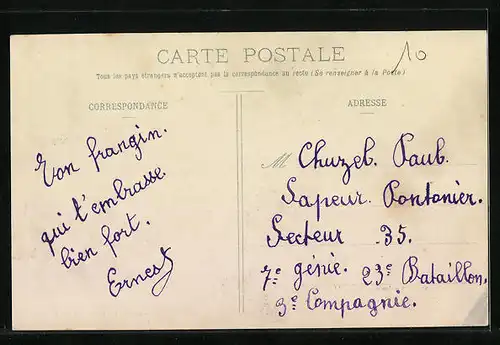 CARTE POSTALE
10
Tous les pays étrangers n'acceptent pas la correspondance au recto (Se renseigner à la Poste)
CORRESPONDANCE
ADRESSE
Ton frangin.
qui t'embrasse
bien fort.
Ernest
M Chuzel. Paul.
Sapeur. Pontonier.
Secteur 35.
7e génie. 23e Bataillon.
3e Compagnie.